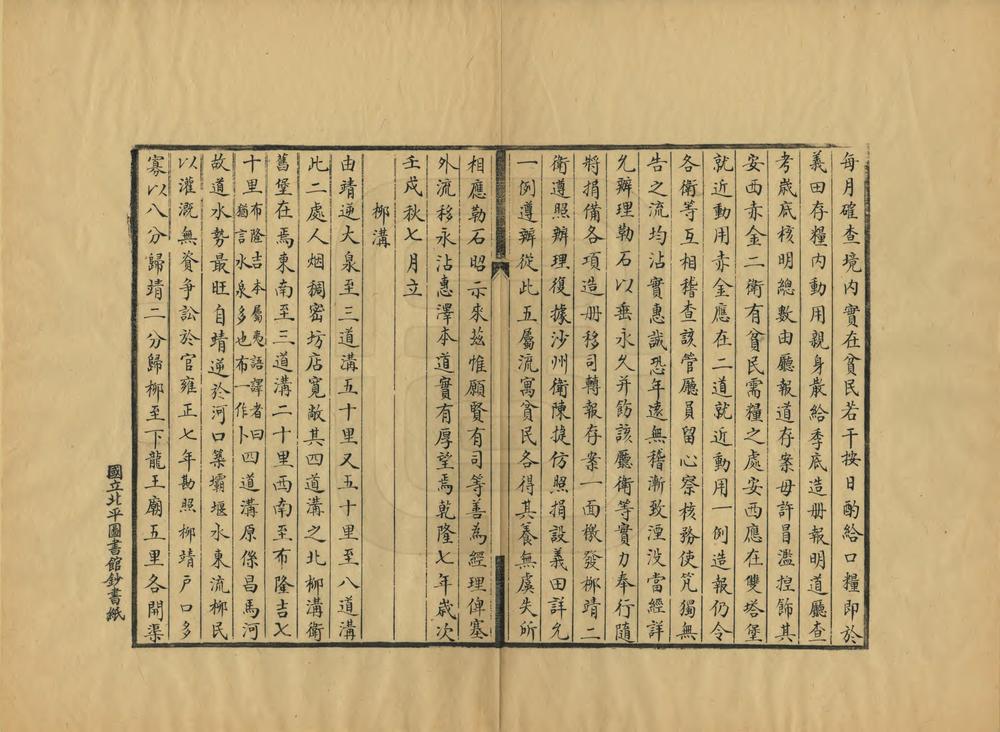 每月確查境內實在貧民若干按日酌給口糧即於
義田存糧內動用親身散給季底造册報明道廳查
考歲底核明總數由廳報道存案毋許冒濫揑飾其
安西赤金二衛有貧民需糧之處安西應在雙塔堡
就近動用赤金應在二道就近動用一例造報仍令
各衛等互相稽查該管廳員留心察核務使焭獨無
告之流均沾實惠誠恐年遠無稽漸致湮没當經詳
允辦理勒石以垂永久并飭該廳衛等實力奉行隨
將捐備各項造册移司轉報存案一面檄發柳靖二
衛遵照辦理復據沙州衛陳㨗仿照捐設義田詳允
一例遵辦從此五屬流寓貧民各得其養無虞失所
相應勒石昭示來兹惟願賢有司等善為經理俾塞
外流移永沾惠澤本道實有厚望焉乾隆七年歲次
壬戌秋七月立
柳溝
由靖逆大泉至三道溝五十里又五十里至八道溝
此二處人烟稠密坊店寬敞其四道溝之北柳溝衛
舊堡在焉東南至三道溝二十里西南至布隆吉七
十里布隆吉本屬夷語譯者曰猶言水泉多也布一作卜四道溝原係昌馬河
故道水勢最旺自靖逆於河口築壩堰水東流柳民
以灌溉無資爭訟於官雍正七年勘照柳靖戶口多
寡以八分歸靖二分歸柳至下龍王廟五里各開渠
國立北平圖書館鈔書紙